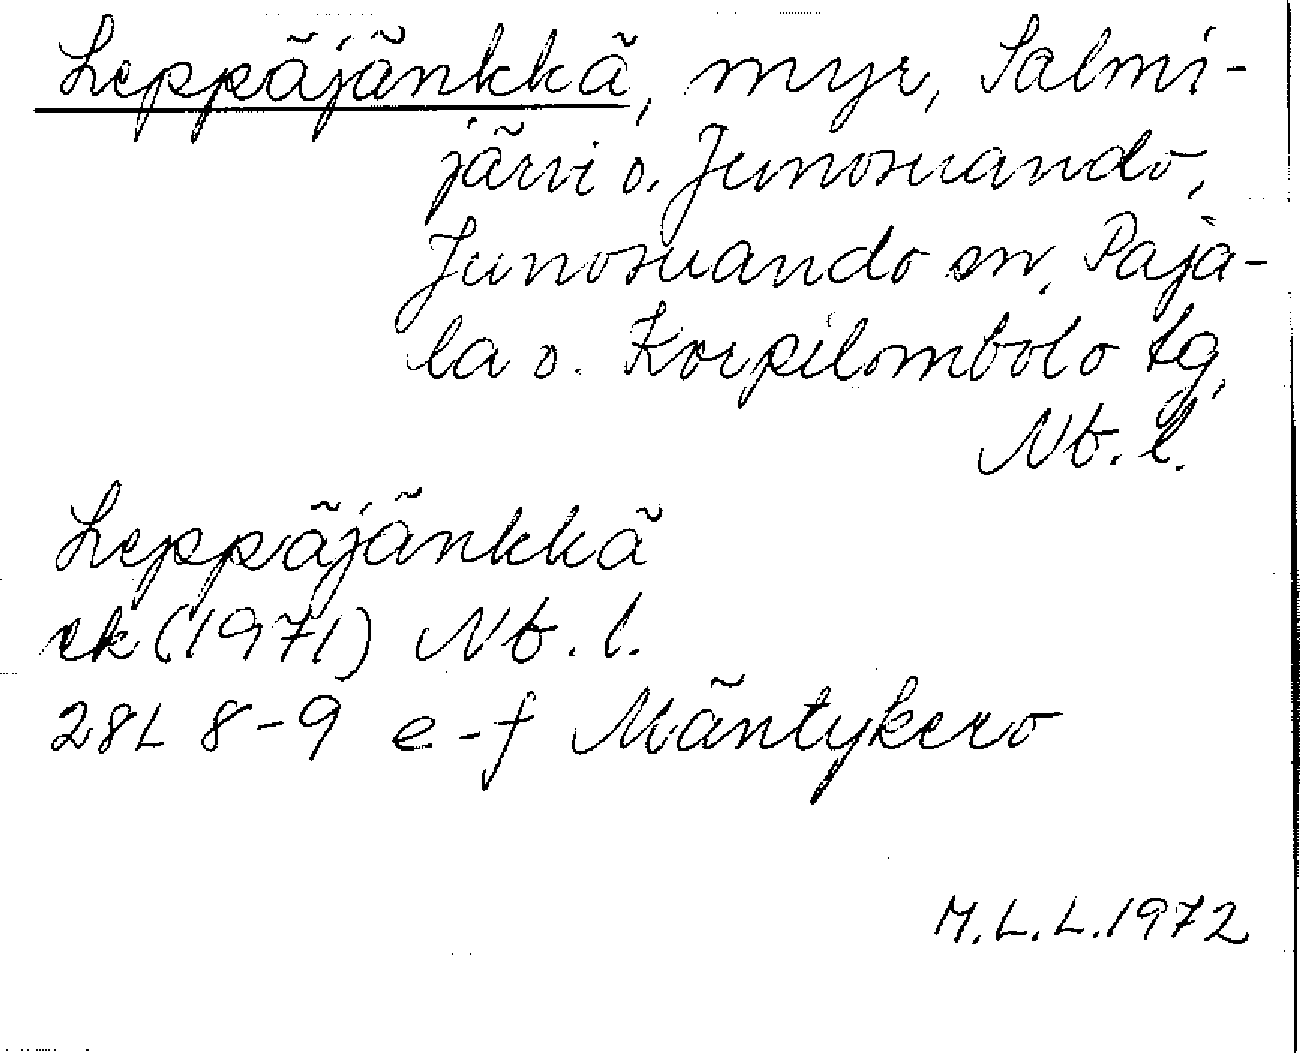 Leppäjänkkä, myr, Salmi-
järvi o. Junosuando,
Junosuando sn, Paja-
la o. Korpilombolo tg,
Nb. l.
Leppäjänkkä
ek (1971) Nb. l.
28L 8-9 e-f Mäntykero
M.L.L. 1972